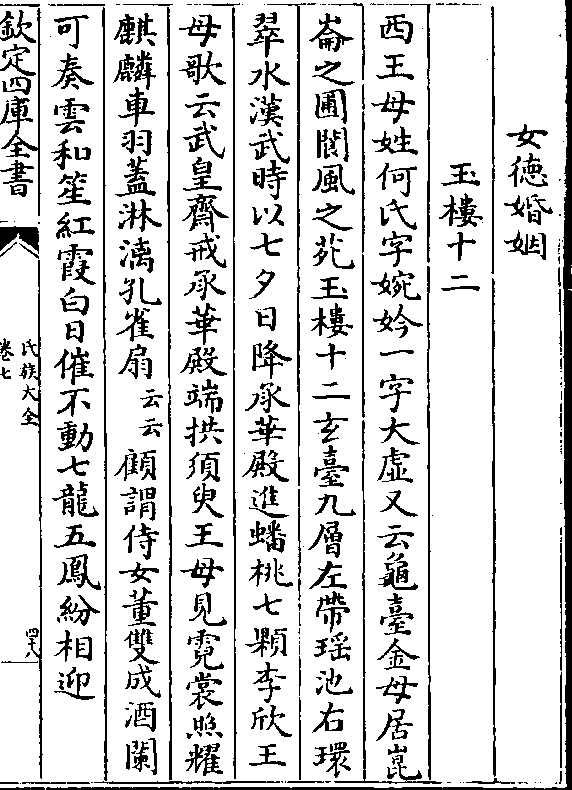 女德婚姻
玉樓十二
西王母姓何氏字婉妗一字大虛又云龜臺金母居崑
崙之圃閬風之苑玉樓十二玄臺九層左帶瑤池右環
翠水漢武時以七夕日降承華殿進蟠桃七顆李欣王
母歌云武皇齋戒承華殿端拱須臾王母見霓裳照耀
麒麟車羽蓋淋漓孔雀扇云云顧謂侍女董雙成酒闌
可奏雲和笙紅霞白日催不動七龍五鳳紛相迎
欽定四庫全書
氏族大全
卷七
四八